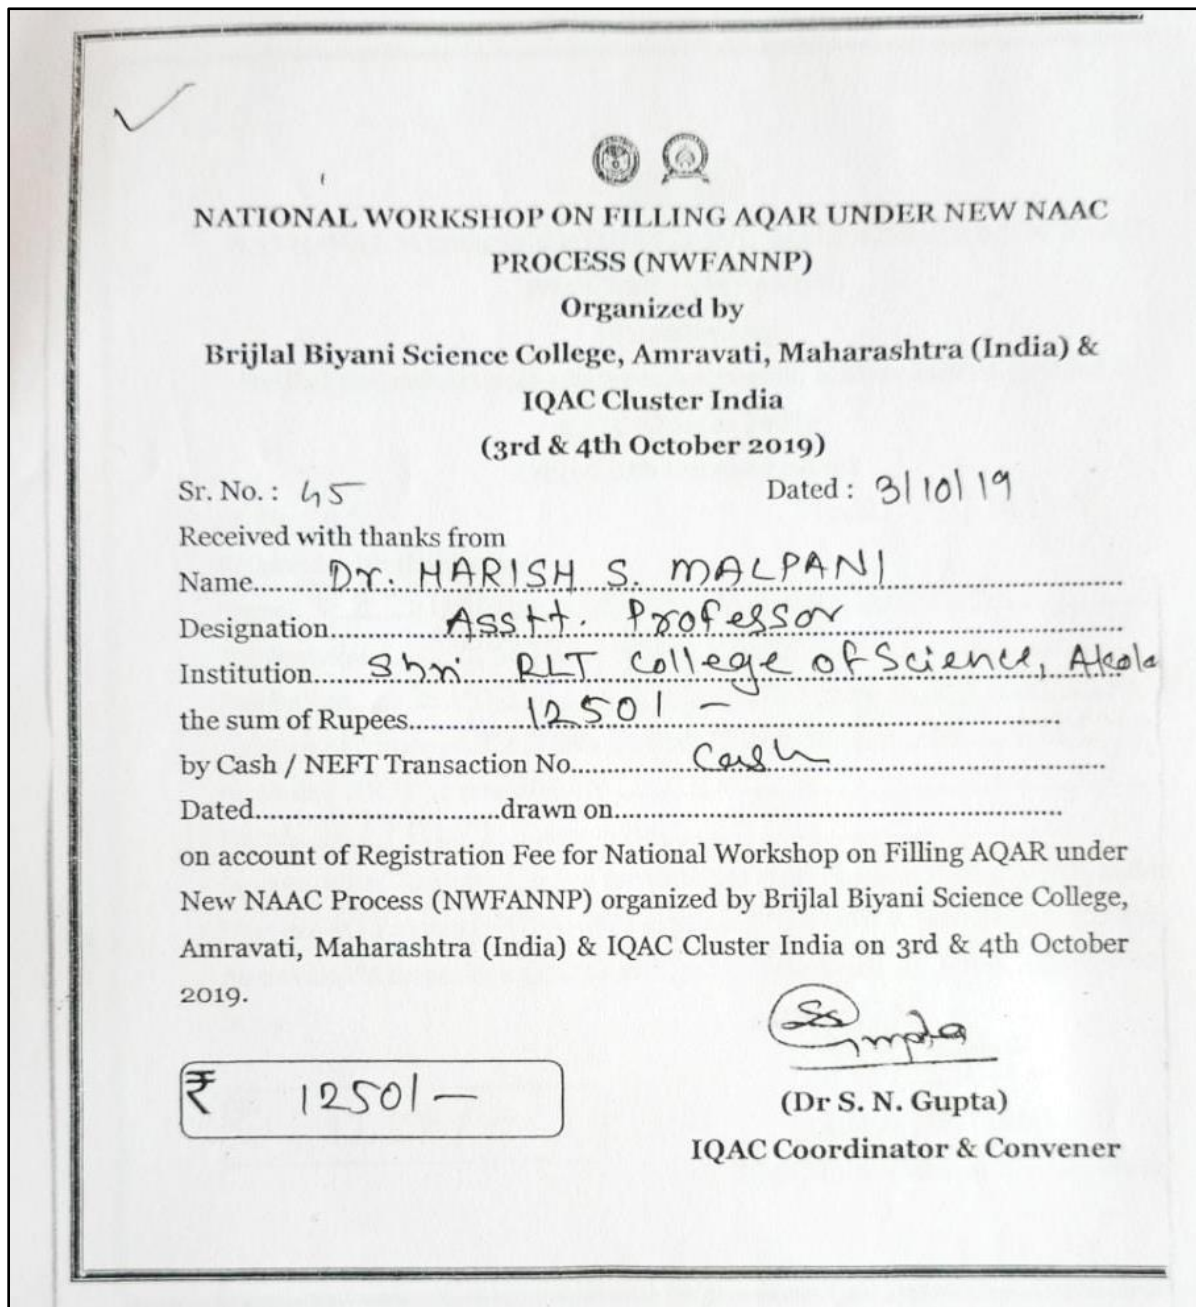 NATIONAL WORKSHOP ON FILLING AQAR UNDER NEW NAAC
PROCESS (NWFANNP)
Organized by
Brijlal Biyani Science College, Amravati, Maharashtra (India) &
IQAC Cluster India
(3rd & 4th October 2019)
Sr. No. : 45 Dated : 3/10/19
Received with thanks from
Name........Dr. HARISH S. MALPANI........
Designation........Asstt. Professor........
Institution........Shri RLT College of Science, Akola
the sum of Rupees........1250/-........
by Cash / NEFT Transaction No........Cash........
Dated........drawn on........
on account of Registration Fee for National Workshop on Filling AQAR under
New NAAC Process (NWFANNP) organized by Brijlal Biyani Science College,
Amravati, Maharashtra (India) & IQAC Cluster India on 3rd & 4th October
2019.
SS Gupta
₹ 1250/-
(Dr S. N. Gupta)
IQAC Coordinator & Convener